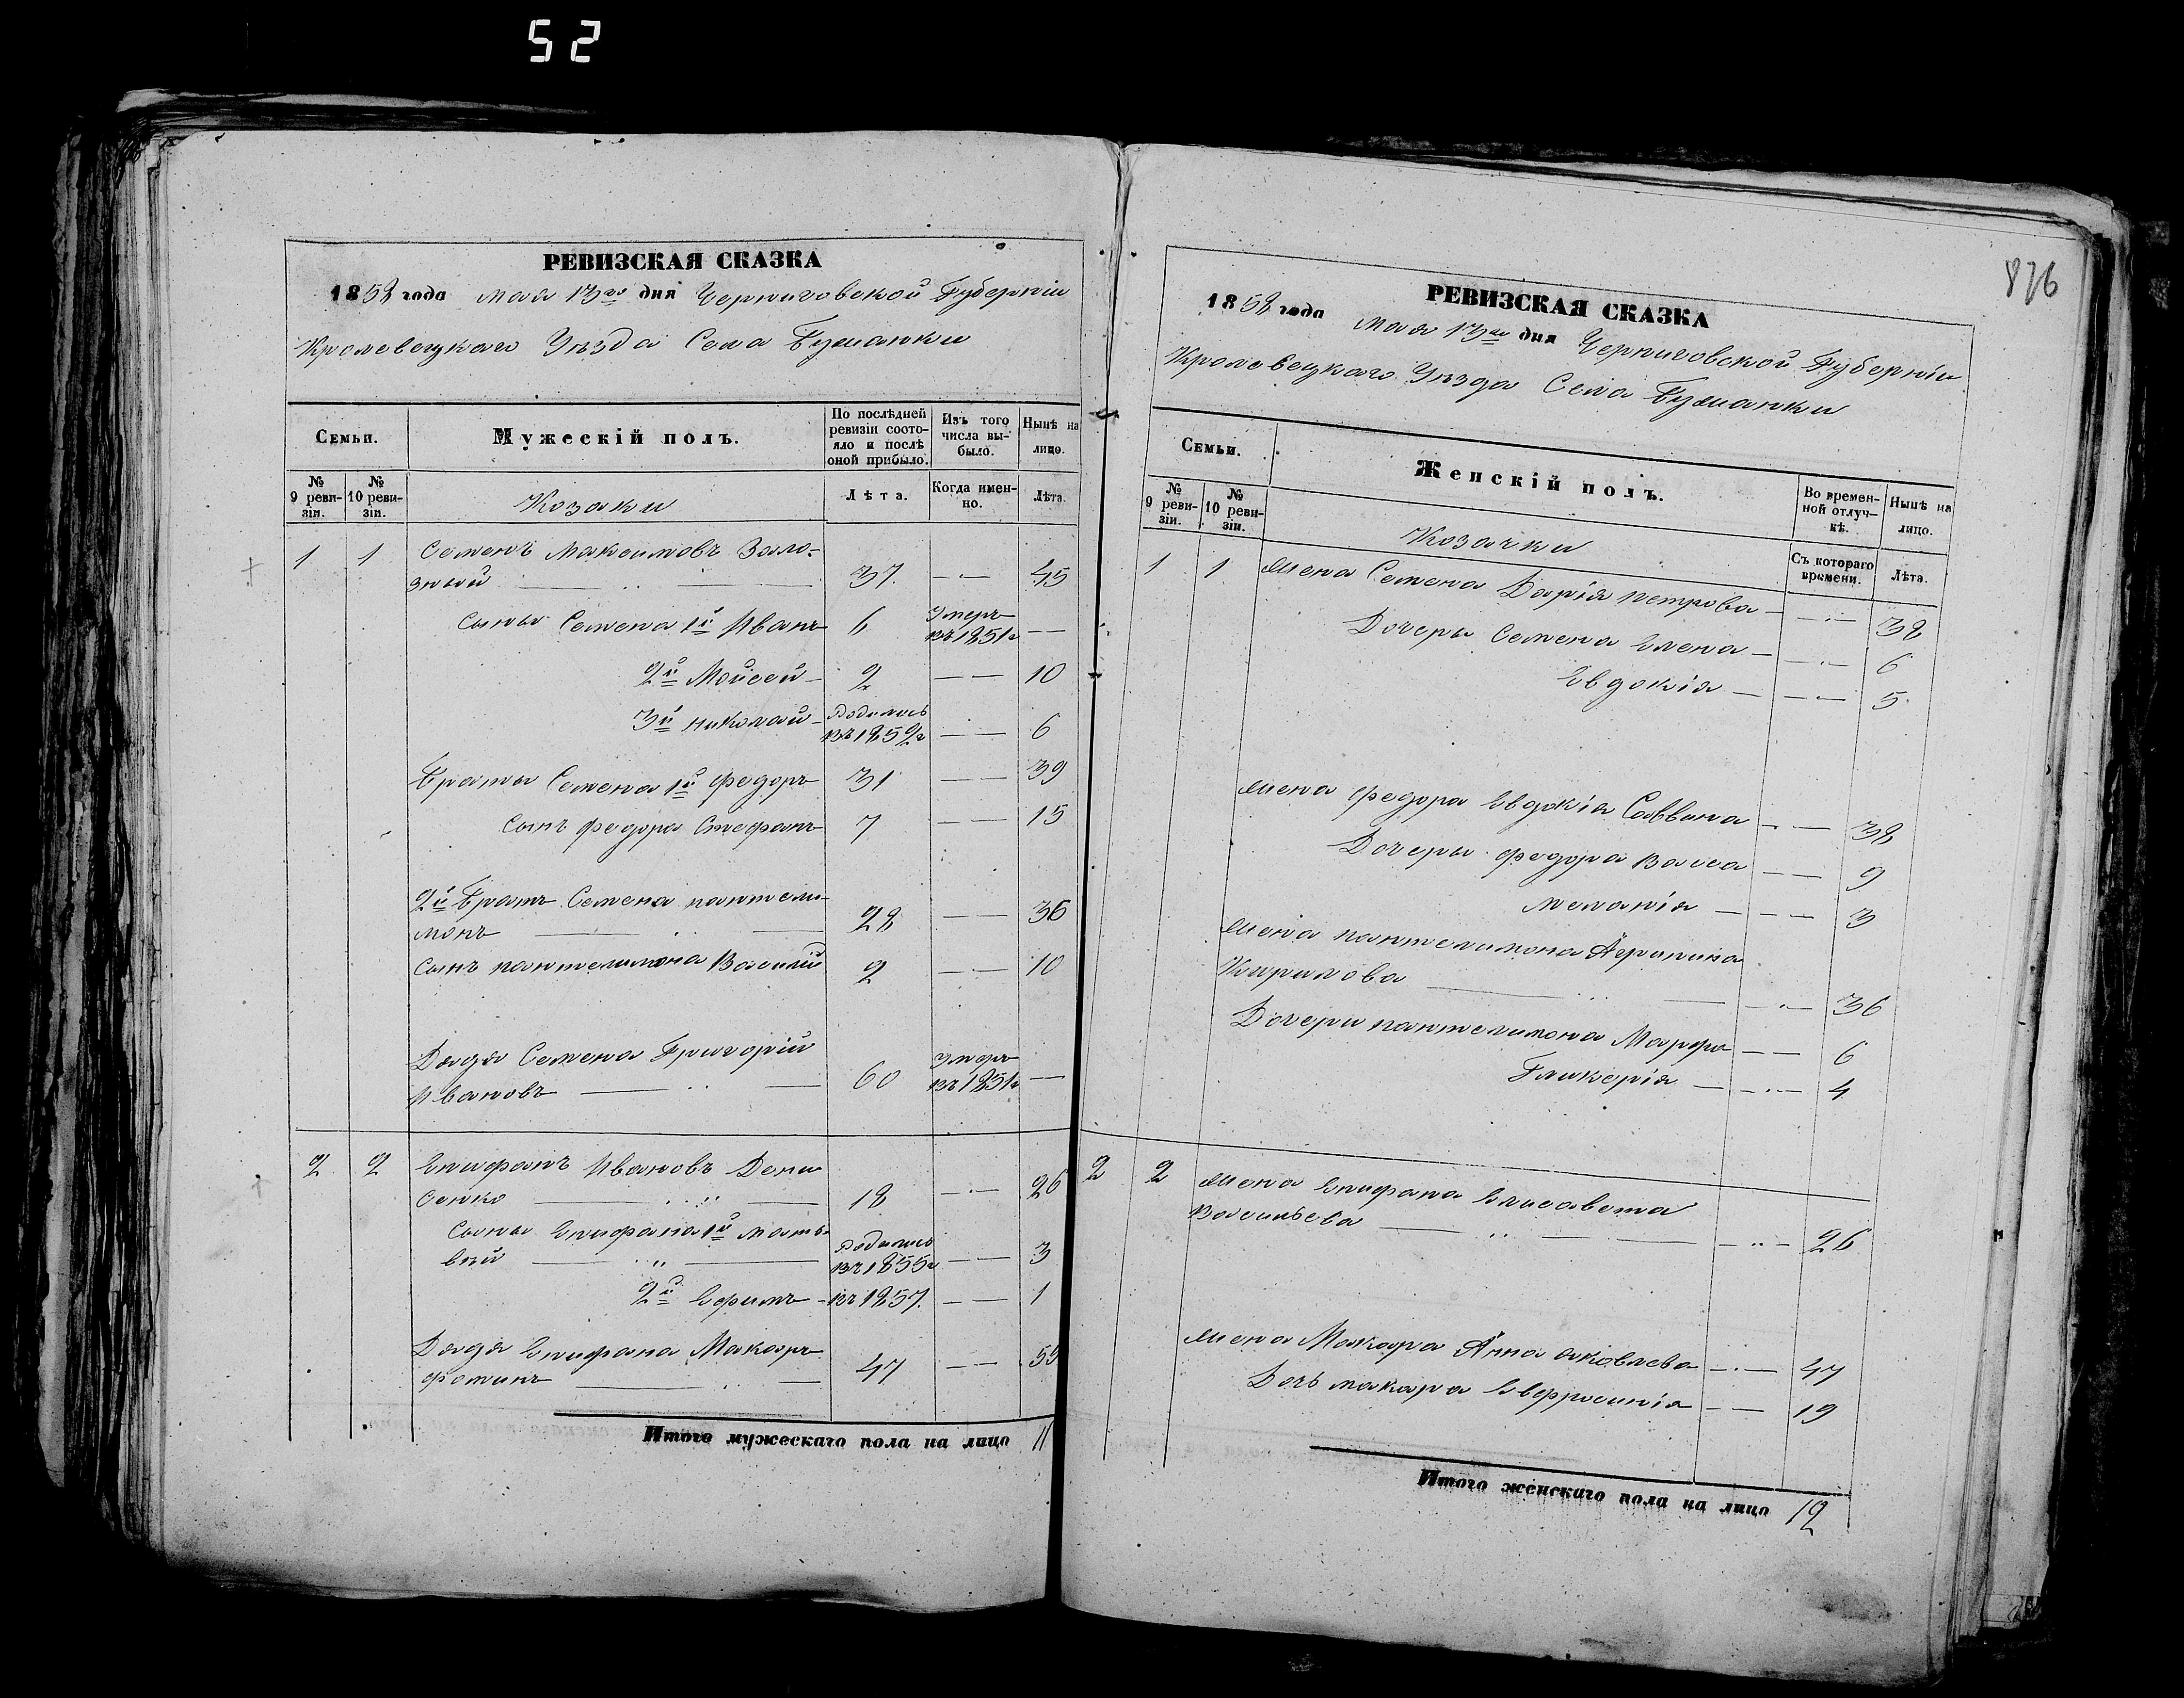 52
РЕВИЗСКАЯ СКАЗКА
1858 года мая 13го дня Черниговской Губерніи
Кролевецкаго Уѣзда Села
Семьи.
Мужескій полъ.
По послѣдней ревизіи состояло и послѣ оной прибыло.
Изъ того числа выбыло.
Нынѣ на лицо.
№ 9 ревизіи.
№ 10 ревизіи.
Козаки
Лѣта.
Когда именно.
Лѣта.
1 1 Семенъ Максимовъ
зный 37 45
Сыны Семена 1й Иванъ 6 Умеръ въ 1851г
2й Мойсей 2 10
3й николай Родились въ 1852г 6
Браты Семена 1й федоръ 31 39
Сынъ федора Стефанъ 7 15
2й Братъ Семена пантели-
монъ 28 36
Сынъ пантелимона Василій 2 10
Дядя Семена Григорій
Ивановъ 60 Умеръ въ 1851г
2 2 Епифанъ Ивановъ Дени
сенко 18 26
Сыны Епифана 1й мать-
вѣй Родились въ 1855г 3
2й Ефимъ въ 1857. 1
Дядя Епифана Макаръ
фоминъ 47 55
Итого мужескаго пола на лицо 11
876
РЕВИЗСКАЯ СКАЗКА
1858 года мая 13го дня Черниговской Губерніи
Кролевецкаго Уѣзда Села
Семьи.
Женскій полъ.
Во временной отлучкѣ.
Нынѣ на лицо.
№ 9 ревизіи.
№ 10 ревизіи.
Козачки
Съ котораго времени.
Лѣта.
1 1 Жена Семена Дарія петрова 38
Дочеры Семена Елена 6
Евдокія 5
Жена федора Евдокія Саввина 38
Дочеры федора Васса 9
меланія 3
Жена пантелимона Агрипина
Кирилова 36
Дочери пантелимона Марфа 6
Гликерія 4
2 2 Жена Епифана Елисавета
Васильева 26
Жена Макара Анна яковлева 47
Дочь макара Евфросинія 19
Итого женскаго пола на лицо 12